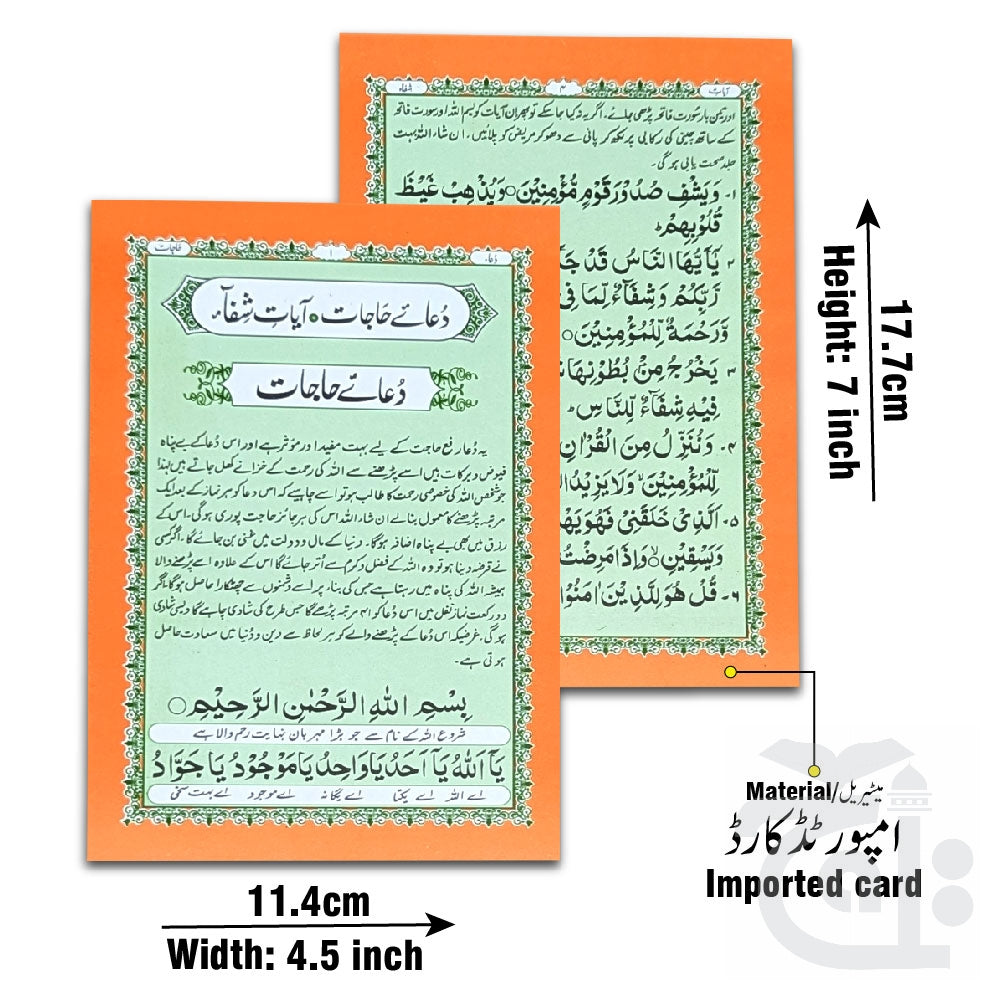 آیات
۴
شفاء
اور تین بار سورت فاتحہ پڑھی جائے۔ اگر یہ نہ کیا جا سکے تو پھر ان آیات کو بسم اللہ اور سورت فاتحہ
کے ساتھ چینی کی رکابی پر لکھ کر پانی سے دھو کر مریض کو پلائیں۔ ان شاء اللہ بہت
جلد صحت یابی ہو گی۔
۱۔ وَيَشْفِ صُدُوْرَ قَوْمٍ مُّؤْمِنِيْنَ ○ وَيُذْهِبْ غَيْظَ
قُلُوْبِهِمْ ؕ
۲۔ يٰۤاَيُّهَا النَّاسُ قَدْ جَآ
رَّبِّكُمْ وَشِفَآءٌ لِّمَا فِى
وَّرَحْمَةٌ لِّلْمُؤْمِنِيْنَ ○
۳۔ يَخْرُجُ مِنْۢ بُطُوْنِهَا
فِيْهِ شِفَآءٌ لِّلنَّاسِ ؕ
۴۔ وَنُنَزِّلُ مِنَ الْقُرْاٰنِ
لِّلْمُؤْمِنِيْنَ وَلَا يَزِيْدُ
۵۔ اَلَّذِىْ خَلَقَنِىْ فَهُوَ يَهْ
وَيَسْقِيْنِ ○ وَاِذَا مَرِضْتُ
۶۔ قُلْ هُوَ لِلَّذِيْنَ اٰمَنُوْا
دُعاء
۱
حاجات
دُعائے حَاجَات ٥ آیات شِفاء
دُعائے حاجات
یہ دُعا رفع حاجت کے لیے بہت مفید اور مؤثر ہے اور اس دُعا کے بے پناہ
فیوض و برکات ہیں اسے پڑھنے سے اللہ کی رحمت کے خزانے کھل جاتے ہیں لہٰذا
جو شخص اللہ کی خصوصی رحمت کا طالب ہو تو اسے چاہیے کہ اس دُعا کو ہر نماز کے بعد ایک
مرتبہ پڑھنے کا معمول بنا لے ان شاء اللہ اس کی ہر جائز حاجت پوری ہو گی۔ اس کے
رزق میں بھی بے پناہ اضافہ ہو گا۔ دنیا کے مال و دولت میں غنی بن جائے گا، اگر کسی
نے قرضہ دینا ہو تو وہ اللہ کے فضل و کرم سے اُتر جائے گا اس کے علاوہ اسے پڑھنے والا
ہمیشہ اللہ کی پناہ میں رہتا ہے جس کی بناء پر اسے دُشمنوں سے چھٹکارا حاصل ہو گا اگر
دو رکعت نماز نفل میں اس دُعا کو ۴۱ مرتبہ پڑھے گا جس طرح کی شادی چاہے گا ویسی شادی
ہو گی، غرضیکہ اس دُعا کے پڑھنے والے کو ہر لحاظ سے دین و دُنیا میں سعادت حاصل
ہوتی ہے۔
بِسْمِ اللهِ الرَّحْمٰنِ الرَّحِيْمِ ○
شروع اللہ کے نام سے جو بڑا مہربان نہایت رحم والا ہے
يَآ اَللهُ يَآ اَحَدُ يَا وَاحِدُ يَا مَوْجُوْدُ يَا جَوَّادُ
اے اللہ اے یکتا اے یگانہ اے موجود اے بہت سخی
17.7cm
Height: 7 inch
Material/میٹیریل
امپورٹڈ کارڈ
Imported card
11.4cm
Width: 4.5 inch